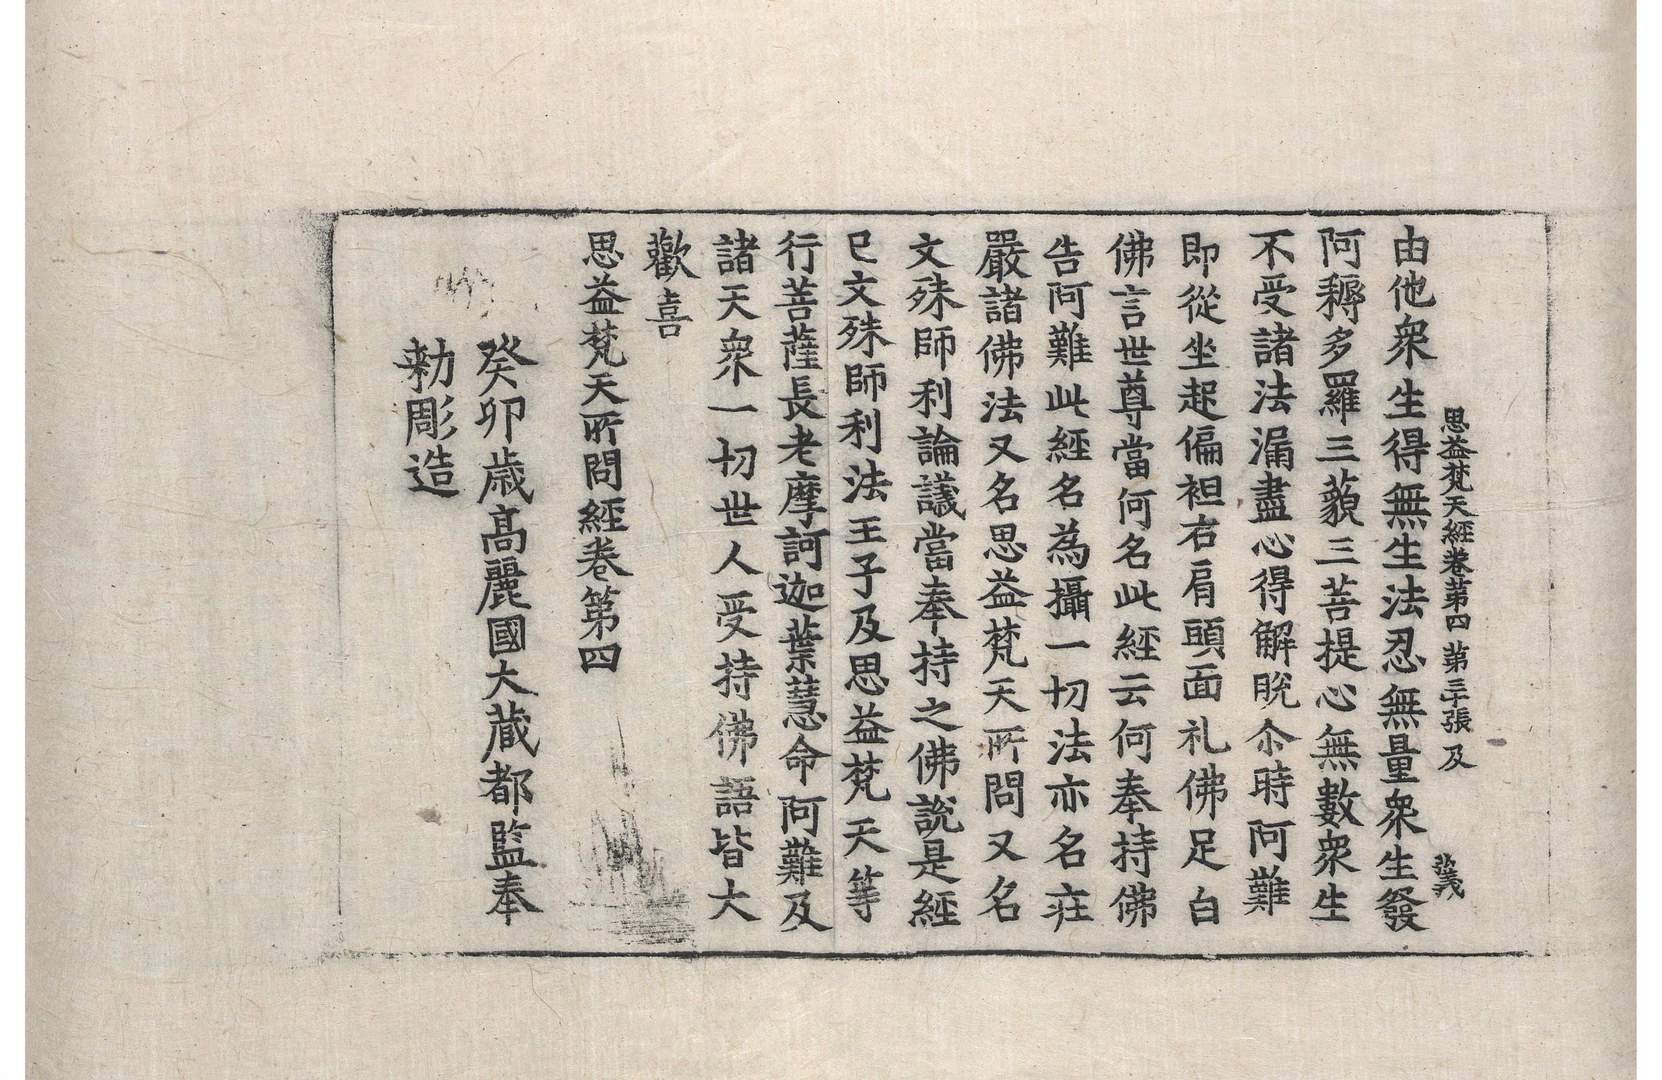 思益梵天經卷第四 第三十張 及
由他衆生得無生法忍無量衆生發
阿耨多羅三藐三菩提心無數衆生
不受諸法漏盡心得解脫尒時阿難
即從坐起偏袒右肩頭面礼佛足白
佛言世尊當何名此經云何奉持佛
告阿難此經名為攝一切法亦名莊
嚴諸佛法又名思益梵天所問又名
文殊師利論議當奉持之佛說是經
已文殊師利法王子及思益梵天等
行菩薩長老摩訶迦葉慧命阿難及
諸天衆一切世人受持佛語皆大
歡喜
思益梵天所問經卷第四
癸卯歲高麗國大藏都監奉
勑彫造